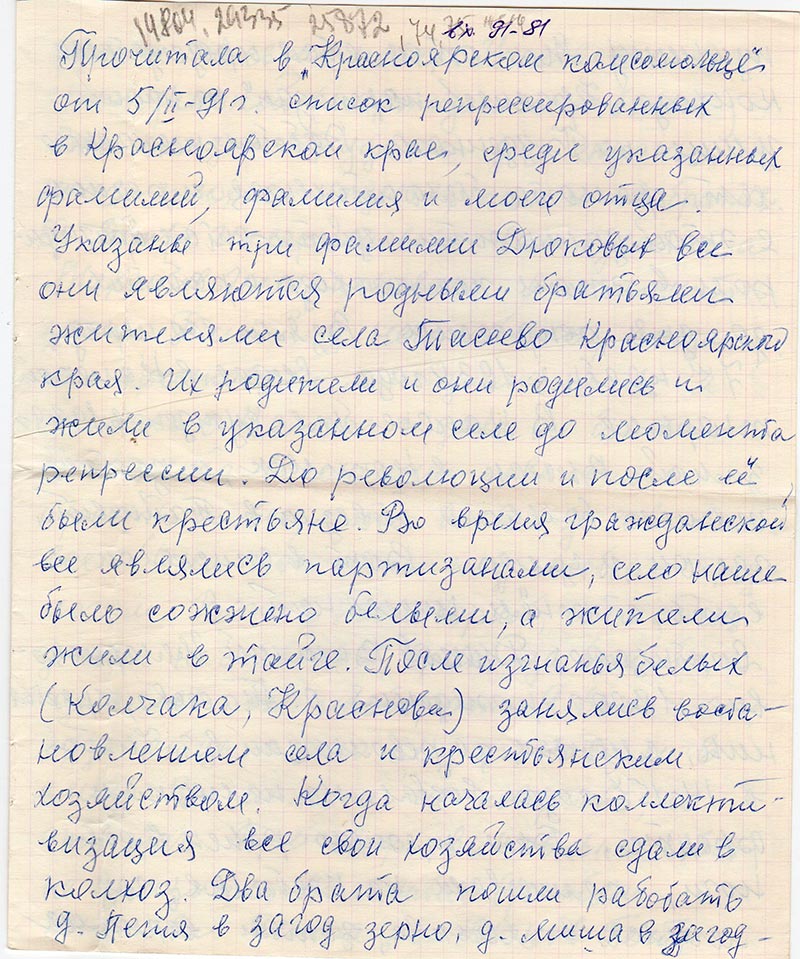 14804, 29335 25872, 74,
вх. 91-81
Прочитала в "Красноярском комсомольце"
от 5/II-91г. список репрессированных
в Красноярском крае, среди указанных
фамилий, фамилия и моего отца.
Указаны три фамилии Дюковых все
они являются родными братьями
жителями села Тасеево Красноярского
края. Их родители и они родились и
жили в указанном селе до момента
репрессии. До революции и после её
были крестьяне. Во время гражданской
все являлись партизанами, село наше
было сожжено белыми, а жители
жили в тайге. После изгнанья белых
(Колчака, Краснова) занялись воста-
новлением села и крестьянским
хозяйством. Когда началась коллекти-
визация все свои хозяйства сдали в
колхоз. Два брата пошли работать
д. Петя в загод зерно, д. миша в загод-